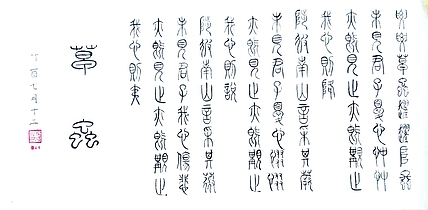 喓喓草蟲趯趯阜螽
未見君子憂心忡忡
亦既見止亦既覯止
我心則降
陟彼南山言采其蕨
未見君子憂心惙惙
亦既見止亦既覯止
我心則說
陟彼南山言采其薇
未見君子我心傷悲
亦既見止亦既覯止
我心則夷
草蟲
丁酉 月十二